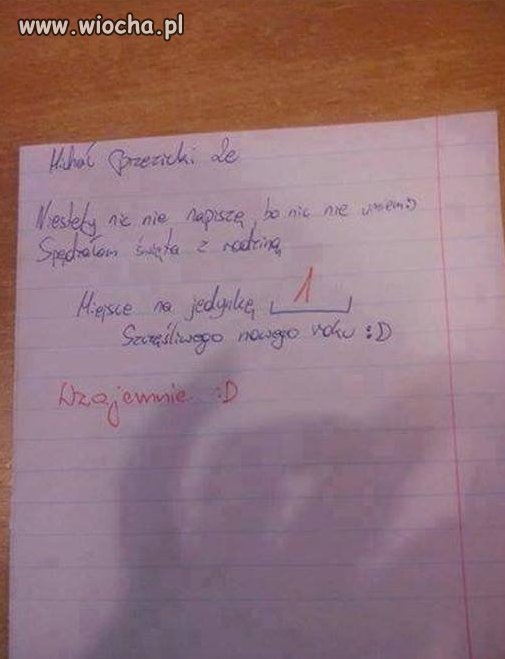 www.wiocha.pl
Michał Brzezicki 2e
Niestety nic nie napiszę, bo nic nie umiem:)
Spędzałem święta z rodziną
Miejsce na jedynkę 1
Szczęśliwego nowego roku :D
Wzajemnie :D